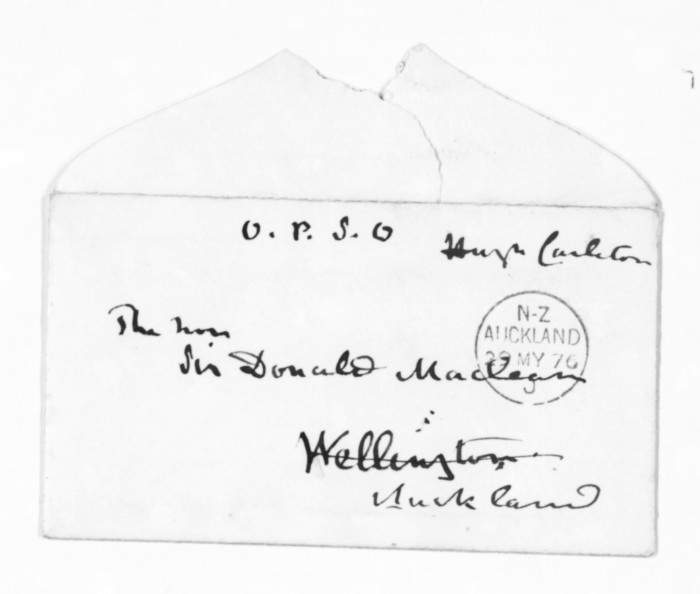 O. P. S. O
Hugh Carleton
The Hon
Sir Donald Maclean
N-Z
AUCKLAND
29 MY 76
Wellington
Auckland